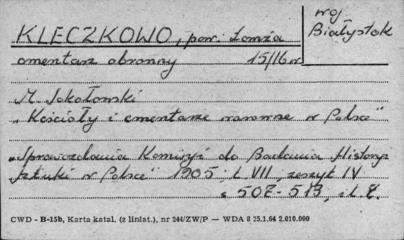 KLECZKOWO, pow. Łomża
woj.
Białystok
cmentarz obronny 15/16 w
M. Sokołowski
„Kościoły i cmentarze warowne w Polsce"
„Sprawozdania Komisyi do Badania Historyi
Sztuki w Polsce" 1905 t. VII, zeszyt IV
s 507-513,
CWD - B-15b, Karta katal. (z liniat.), nr 244/ZW/P — WDA 8 25.1.64 2.010.000